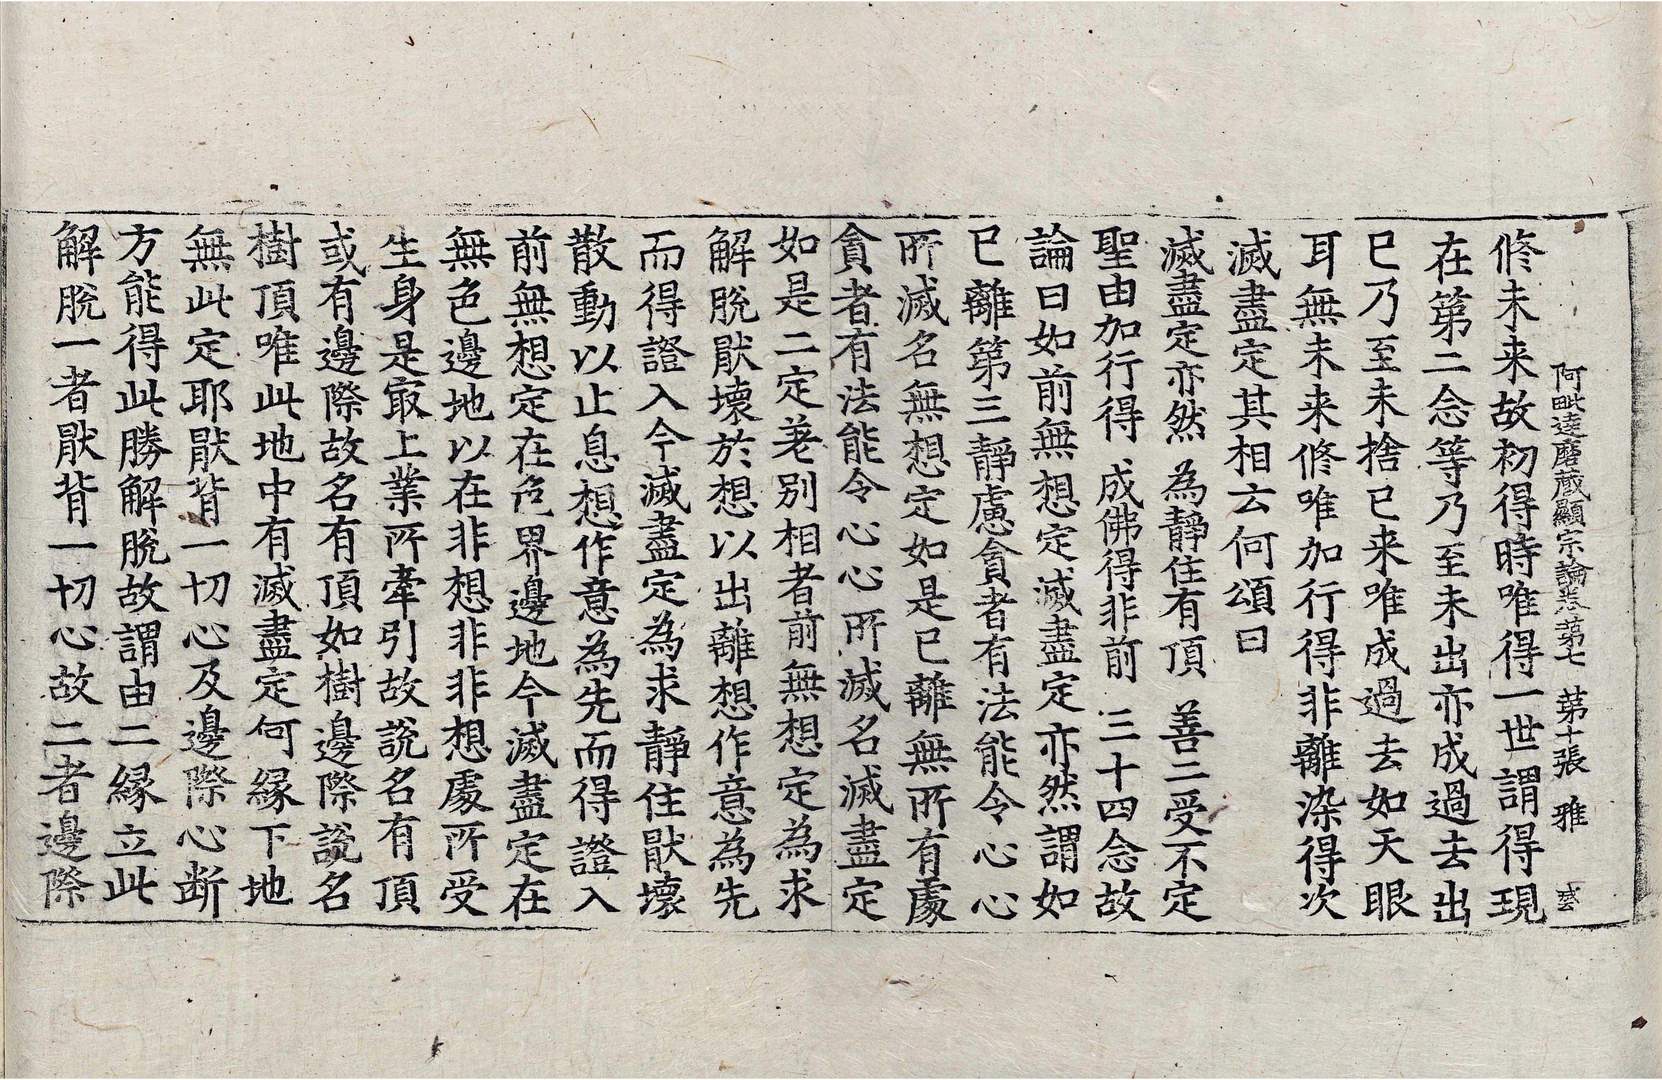 阿毗達磨藏顯宗論卷第七 第十張 雅
修未来故初得時唯得一世謂得現
在第二念等乃至未出亦成過去出
已乃至未捨已来唯成過去如天眼
耳無未来修唯加行得非離染得次
滅盡定其相云何頌曰
滅盡定亦然 為靜住有頂 善二受不定
聖由加行得 成佛得非前 三十四念故
論曰如前無想定滅盡定亦然謂如
已離第三靜慮貪者有法能令心心
所滅名無想定如是已離無所有處
貪者有法能令心心所滅名滅盡定
如是二定差別相者前無想定為求
解脫猒壞於想以出離想作意為先
而得證入今滅盡定為求靜住猒壞
散動以止息想作意為先而得證入
前無想定在色界邊地今滅盡定在
無色邊地以在非想非非想處所受
生身是㝡上業所牽引故說名有頂
或有邊際故名有頂如樹邊際說名
樹頂唯此地中有滅盡定何緣下地
無此定耶猒背一切心及邊際心斷
方能得此勝解脫故謂由二緣立此
解脫一者猒背一切心故二者邊際